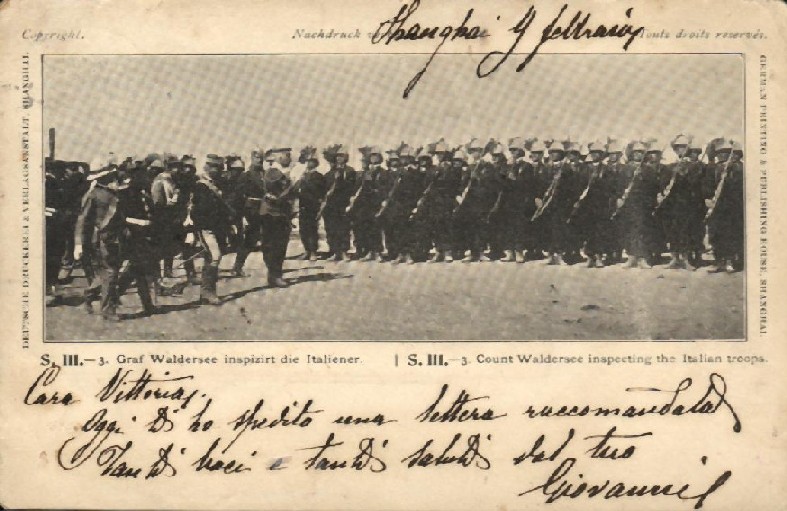 Copyright.
Nachdruck
Tous droits reservés.
Shanghai 9 febbraio
DEUTSCHE DRUCKEREI & VERLAGSANSTALT, SHANGHAI.
GERMAN PRINTING & PUBLISHING HOUSE, SHANGHAI.
S. III.—3. Graf Waldersee inspizirt die Italiener.
S. III.—3. Count Waldersee inspecting the Italian troops.
Cara Vittoria,
Oggi ti ho spedito una lettera raccomandata
Tanti baci e tanti saluti dal tuo
Giovanni